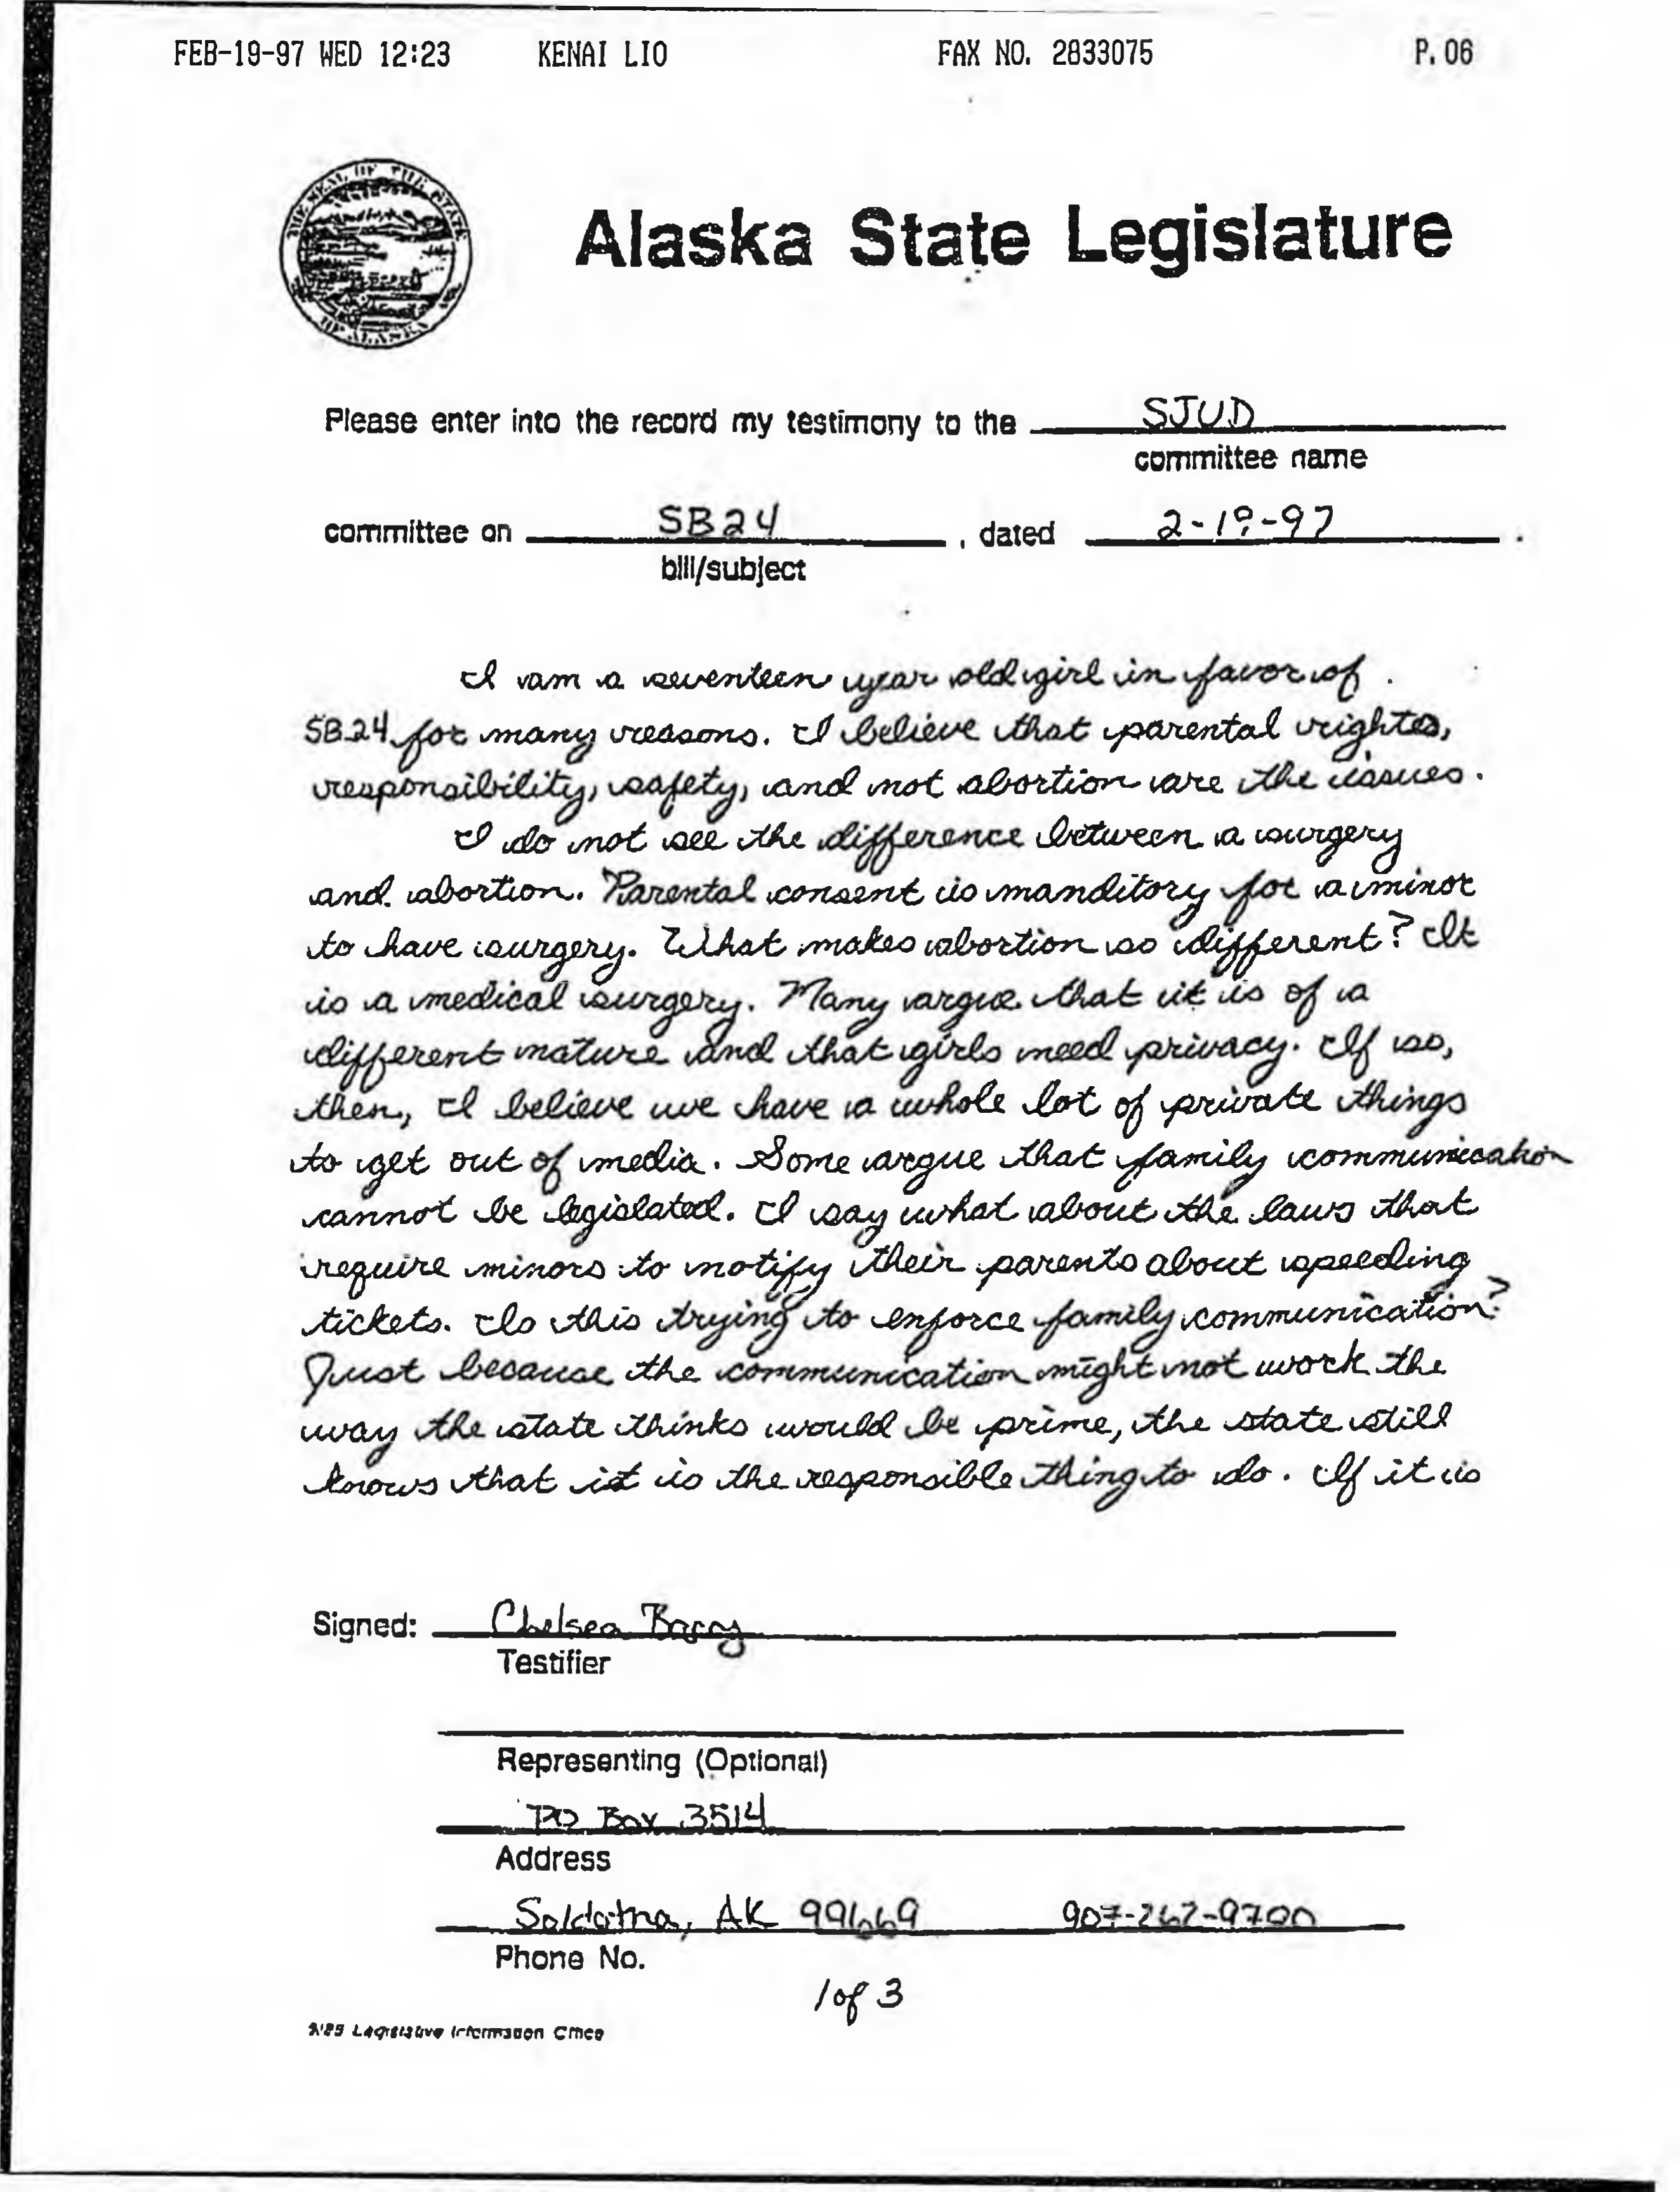 FEB-19-97 WED 12:23 KENAI LIO FAX NO. 2833075 P.06
THE SEAL OF THE STATE OF ALASKA
Alaska State Legislature
Please enter into the record my testimony to the SJUD
committee name
committee on SB24, dated 2-19-97.
bill/subject
I am a seventeen year old girl in favor of
SB24 for many reasons. I believe that parental rights,
responsibility, safety, and not abortion are the issues.
I do not see the difference between a surgery
and abortion. Parental consent is manditory for a minor
to have surgery. What makes abortion so different? It
is a medical surgery. Many argue that it is of a
different nature and that girls need privacy. If so,
then, I believe we have a whole lot of private things
to get out of media. Some argue that family communication
cannot be legislated. I say what about the laws that
require minors to notify their parents about speeding
tickets. Is this trying to enforce family communication?
Just because the communication might not work the
way the state thinks would be prime, the state still
knows that it is the responsible thing to do. If it is
Signed: Chelsea Barry
Testifier
Representing (Optional)
PO Box 3514
Address
Soldotna, AK 99669 907-262-9700
Phone No.
1 of 3
Legislative Information Office